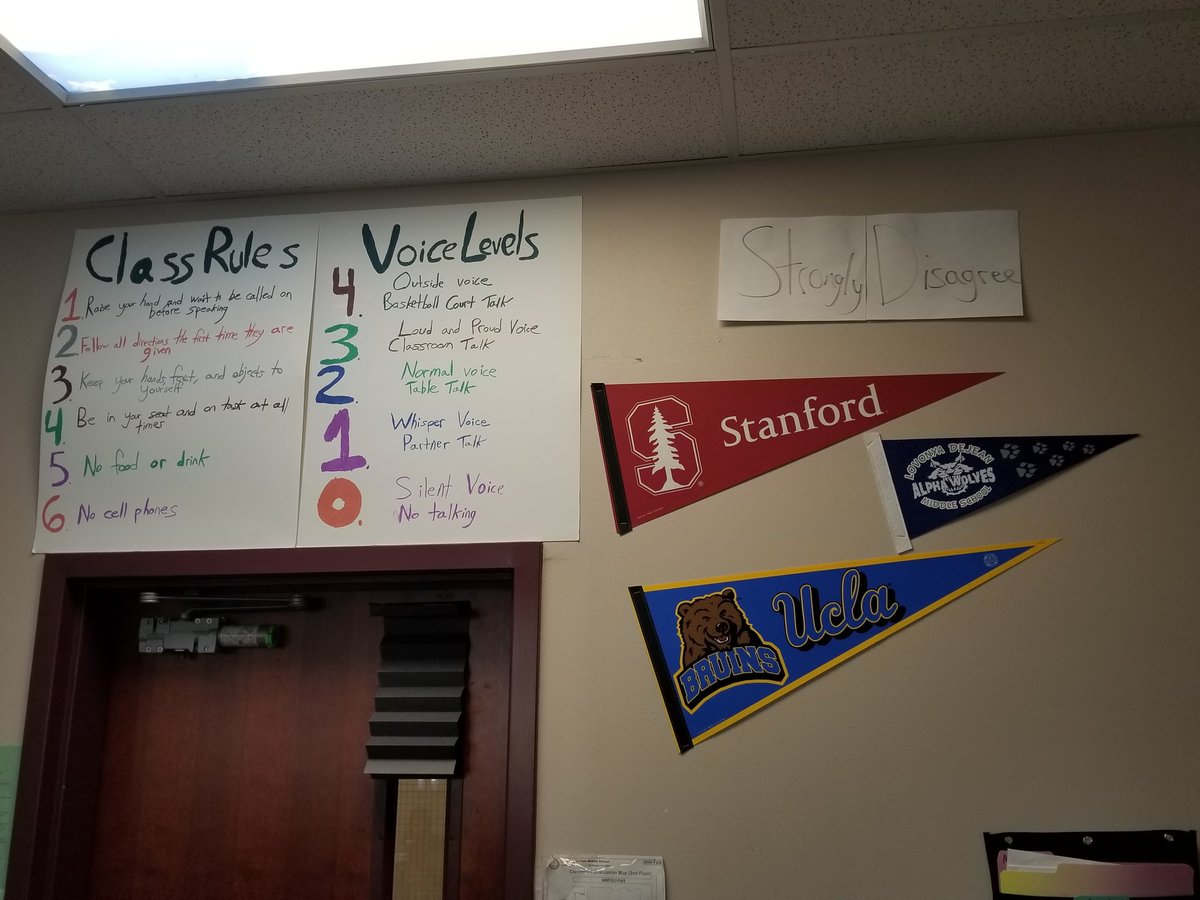 Class Rules
1. Raise your hand and wait to be called on
before speaking
2. Follow all directions the first time they are
given
3. Keep your hands, feet, and objects to
yourself
4. Be in your seat and on task at all
times
5. No food or drink
6. No cell phones
Voice Levels
4. Outside voice
Basketball Court Talk
3. Loud and Proud Voice
Classroom Talk
2. Normal voice
Table Talk
1. Whisper Voice
Partner Talk
0. Silent Voice
No talking
Strongly Disagree
S Stanford
LOVONYA DEJEAN
ALPHA WOLVES
MIDDLE SCHOOL
Ucla
BRUINS
Middle School
Evacuation Map (2nd Floor)